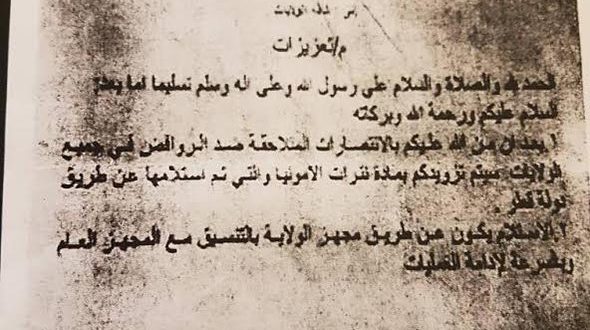 إلى / كافة الولايات
م/تعزيزات
الحمد لله والصلاة والسلام على رسول الله وعلى اله وسلم تسليما اما بعد:
السلام عليكم ورحمة الله وبركاته
١. بعد ان من الله عليكم بالانتصارات المتلاحقة ضد الروافض في جميع
الولايات سيتم تزويدكم بمادة نترات الامونيا والتي تم استلامها عن طريق
دولة قطر .
٢. الاستلام يكون عن طريق مجهز الولاية بالتنسيق مع المجهز العام
وبالسرعة لإدامة العمليات